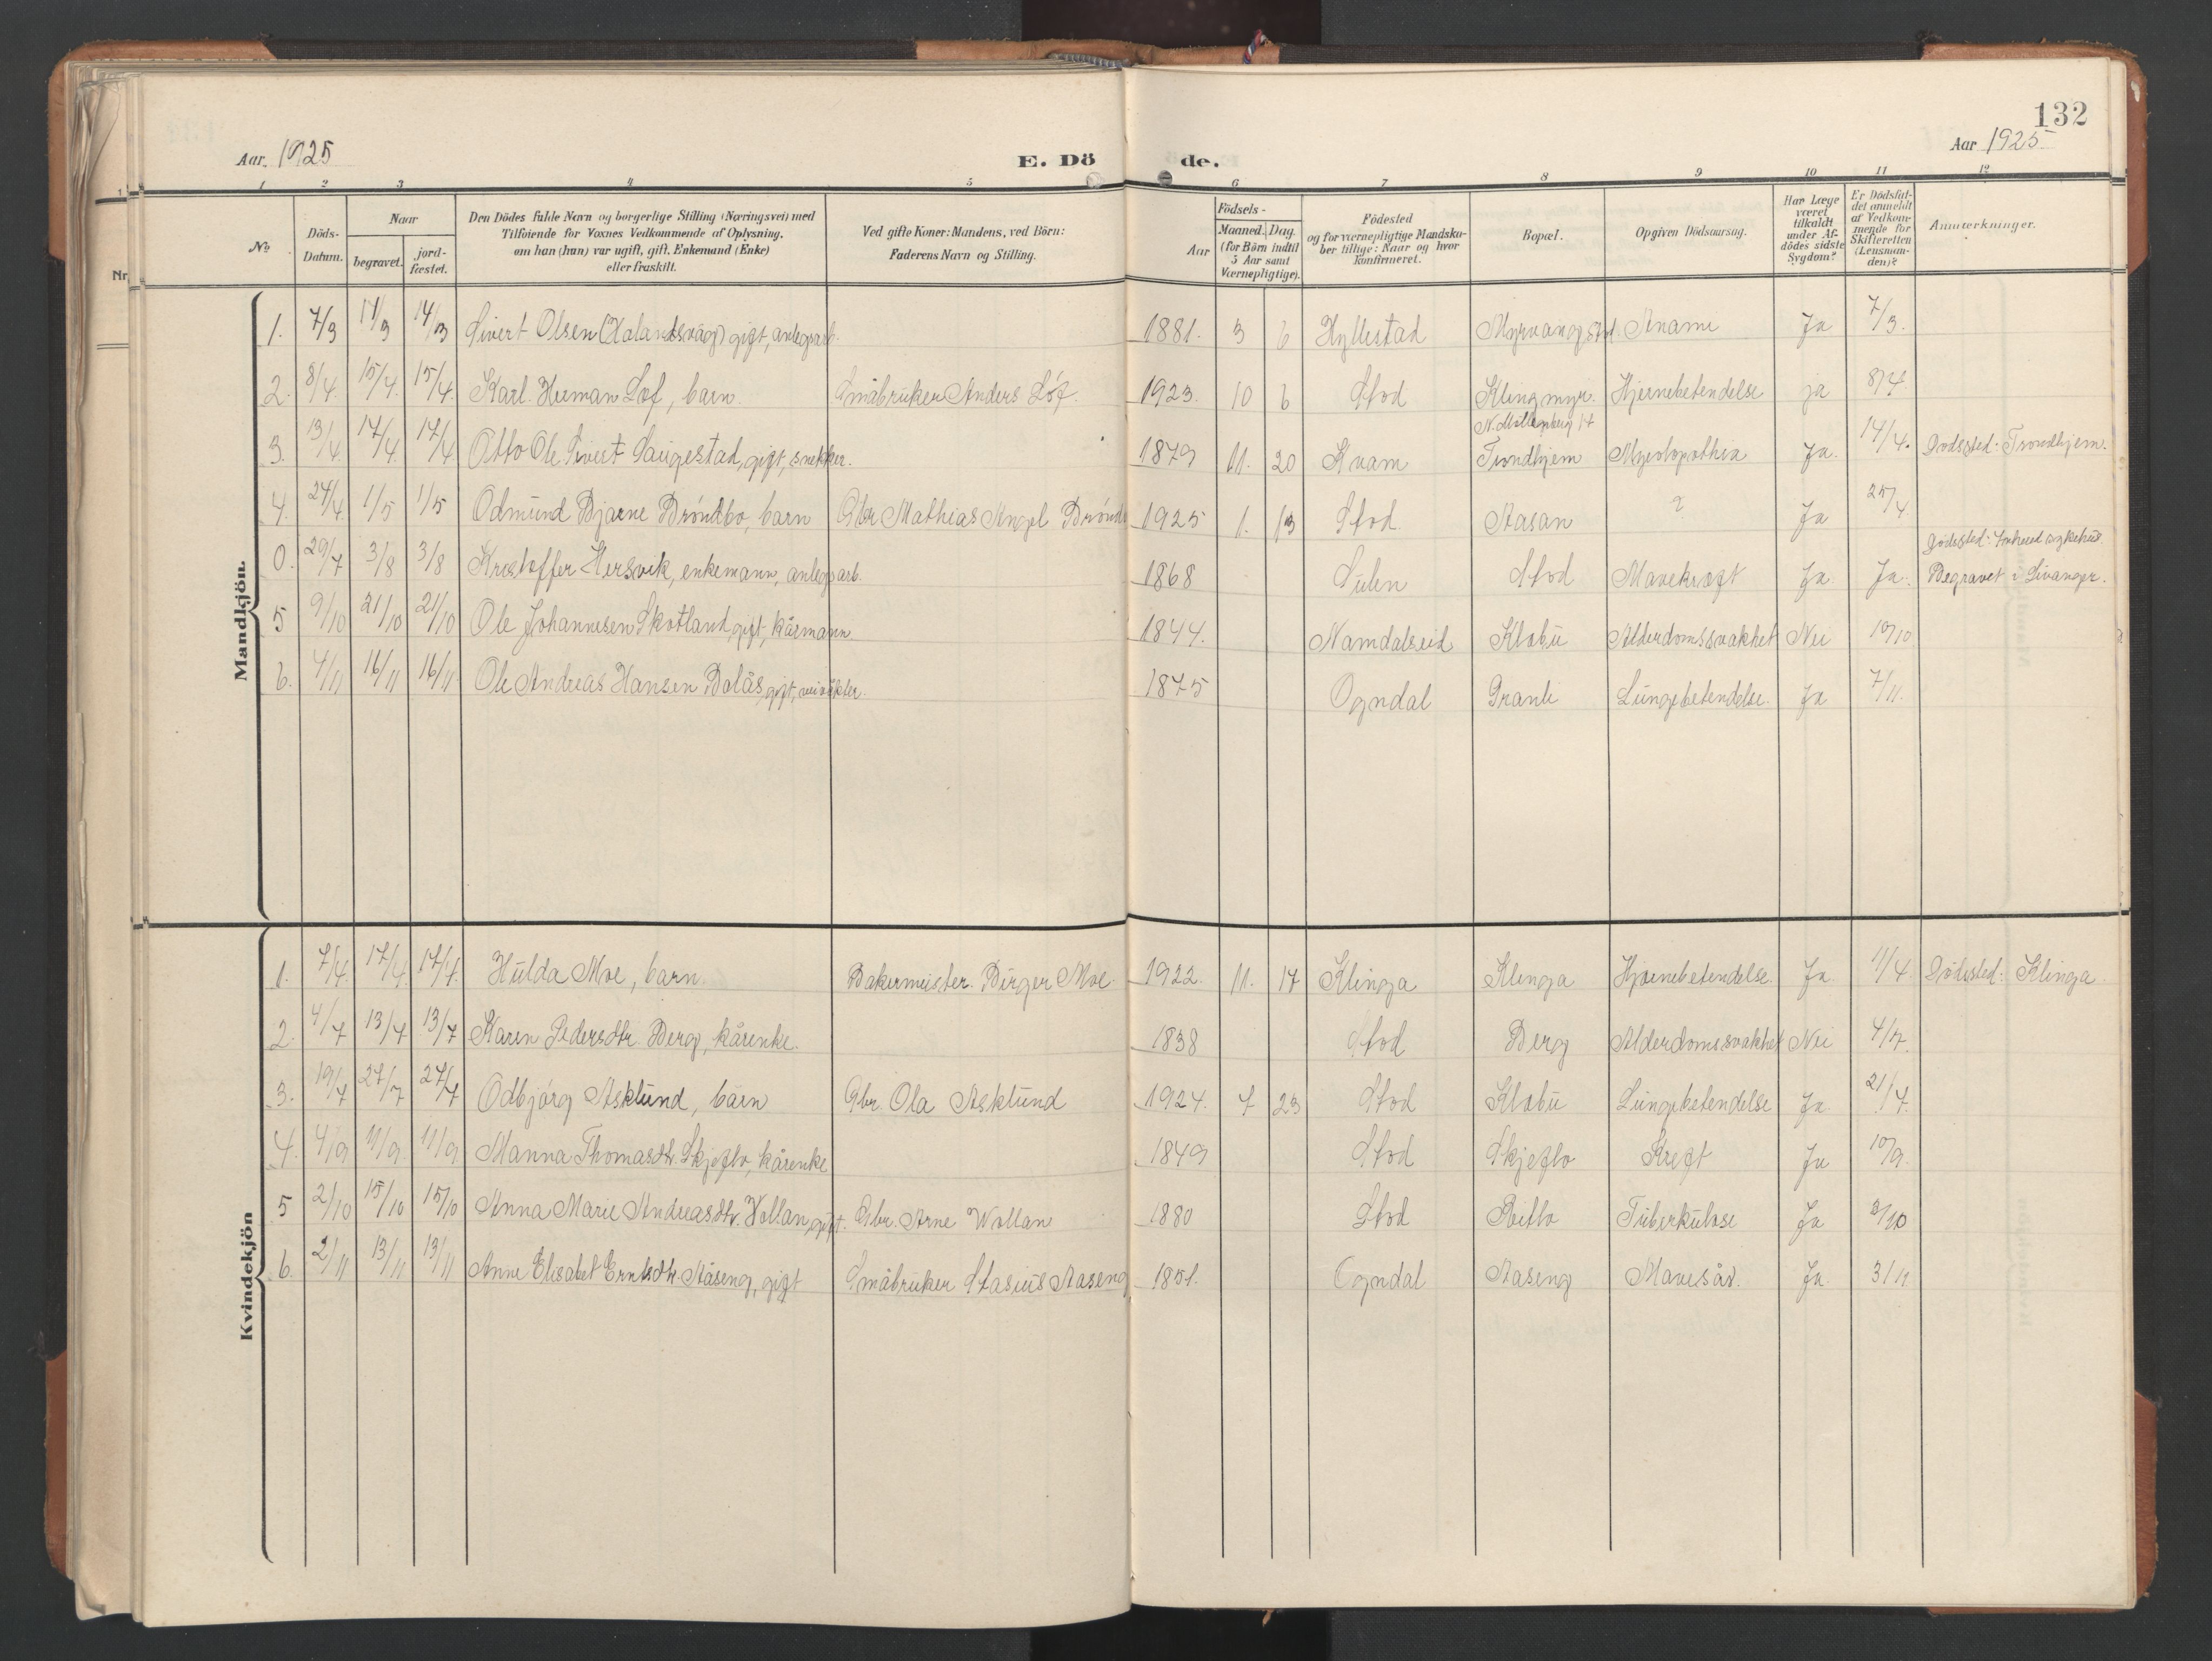 132
Aar 1925
E. Dö
de.
Aar 1925
1 2 3 4 5 6 7 8 9 10 11 12
No
Döds-
Datum.
Naar
begravet.
jord-
fæstet.
Den Dödes fulde Navn og borgerlige Stilling (Næringsvei) med
Tilföiende for Voxnes Vedkommende af Oplysning,
om han (hun) var ugift, gift, Enkemand (Enke)
eller fraskilt.
Ved gifte Koner: Mandens, ved Börn:
Faderens Navn og Stilling.
Födsels-
Aar
Maaned. Dag.
(for Börn indtil
5 Aar samt
Værnepligtige).
Födested
og for værnepligtige Mandska-
ber tillige: Naar og hvor
konfirmeret.
Bopæl.
Opgiven Dödsaarsag.
Har Læge
været
tilkaldt
under Af-
dödes sidste
Sygdom?
Er Dödsfal-
det anmeldt
af Vedkom-
mende for
Skifteretten
(Lensman-
den)?
Anmærkninger.
Nr.
Mandkjön.
1. 7/3 14/3 14/3 Sivert Olsen (Halandsvåg) gift, anlegsarb. 1881. 3 6 Hyllestad Myrvang Stod. Aname Ja 7/3.
2. 8/4. 15/4. 15/4. Karl Herman Løf, barn. Småbruker Anders Löf. 1923. 10 6 Stod Klingmyr. Hjernebetendelse ja 8/4.
N. Møllenberg 14
3. 13/4 17/4 17/4 Otto Ole Sivert Saugestad, gift, snekker. 1879 11. 20 Kvam Trondhjem Myelopathia Ja. 14/4. Dødssted: Trondhjem.
4. 24/4 1/5 1/5 Odmund Bjarne Bröndbo, barn Gbr Mathias Angel Brönd 1925 1. 13 Stod Aasan ? Ja 25/4
Dödssted: Innhered sykehus.
0. 29/7 3/8 3/8 Kristoffer Hersvik, enkemann, anlegsarb. 1868 Sulen Stod Mavekræft Ja Ja. Begravet i Levanger.
5 9/10 21/10 21/10 Ole Johannesen Skotland, gift, kårmann 1844. Namdalseid Klæbu Alderdomssvakhet Nei 10/10
6. 4/11 16/11 16/11 Ole Andreas Hansen Bolås, gift, veivokter. 1875 Ogndal Granli Lungebetendelse. Ja 7/11.
Kvindekjön
1. 7/4 17/4 17/4. Hulda Moe, barn. Bakermeister Birger Moe. 1922. 11. 17 Klinga Klinga Hjernebetendelse. Ja 11/4. Dödssted: Klinga.
2. 4/7 13/7 13/7 Karen Pedersdtr. Berg, kårenke. 1838 Stod Berg Alderdomssvakhet Nei 4/7.
3. 19/7 27/7 27/7 Odbjörg Asklund, barn Gbr. Ola Asklund 1924. 7 23 Stod Klæbu Lungebetendelse Ja 21/7.
4. 4/9 11/9 11/9 Manna Thomasdtr. Skjeflo, kårenke 1849 Stod Skjeflo Kreft Ja 10/9.
5 2/10 15/10 15/10 Anna Marie Andreasdtr. Vollan, gift. Gbr. Arne Wollan 1880 Stod Tuberkulose Ja 3/10
6. 2/11 13/11 13/11 Anne Elisabet Erntsdtr. Aåseng, gift Småbruker Stasius Aaseng 1851. Ogndal Aaseng Mavesår. Ja. 3/11